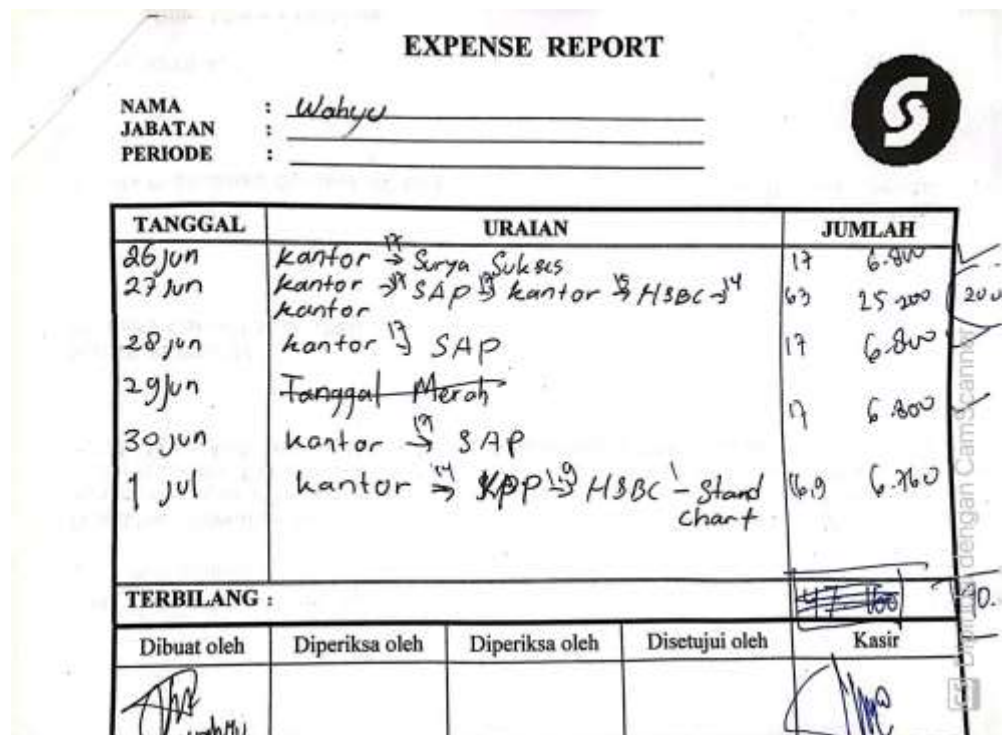 EXPENSE REPORT
NAMA : Wahyu
JABATAN :
PERIODE :
TANGGAL URAIAN JUMLAH
26 Jun kantor 17 → Surya Sukses 17 6.800
27 Jun kantor → SAP → kantor → HSBC → 14 63 25 200
kantor
28 jun kantor 17 → SAP 17 6.800
29 Jun Tanggal Merah
17 6.800
30 jun kantor → SAP
1 jul kantor 14 → KPP 1.9 → HSBC 1 - Stand 16,9 6.760
chart
TERBILANG :
Dibuat oleh Diperiksa oleh Diperiksa oleh Disetujui oleh Kasir
CS dengan CamScanner